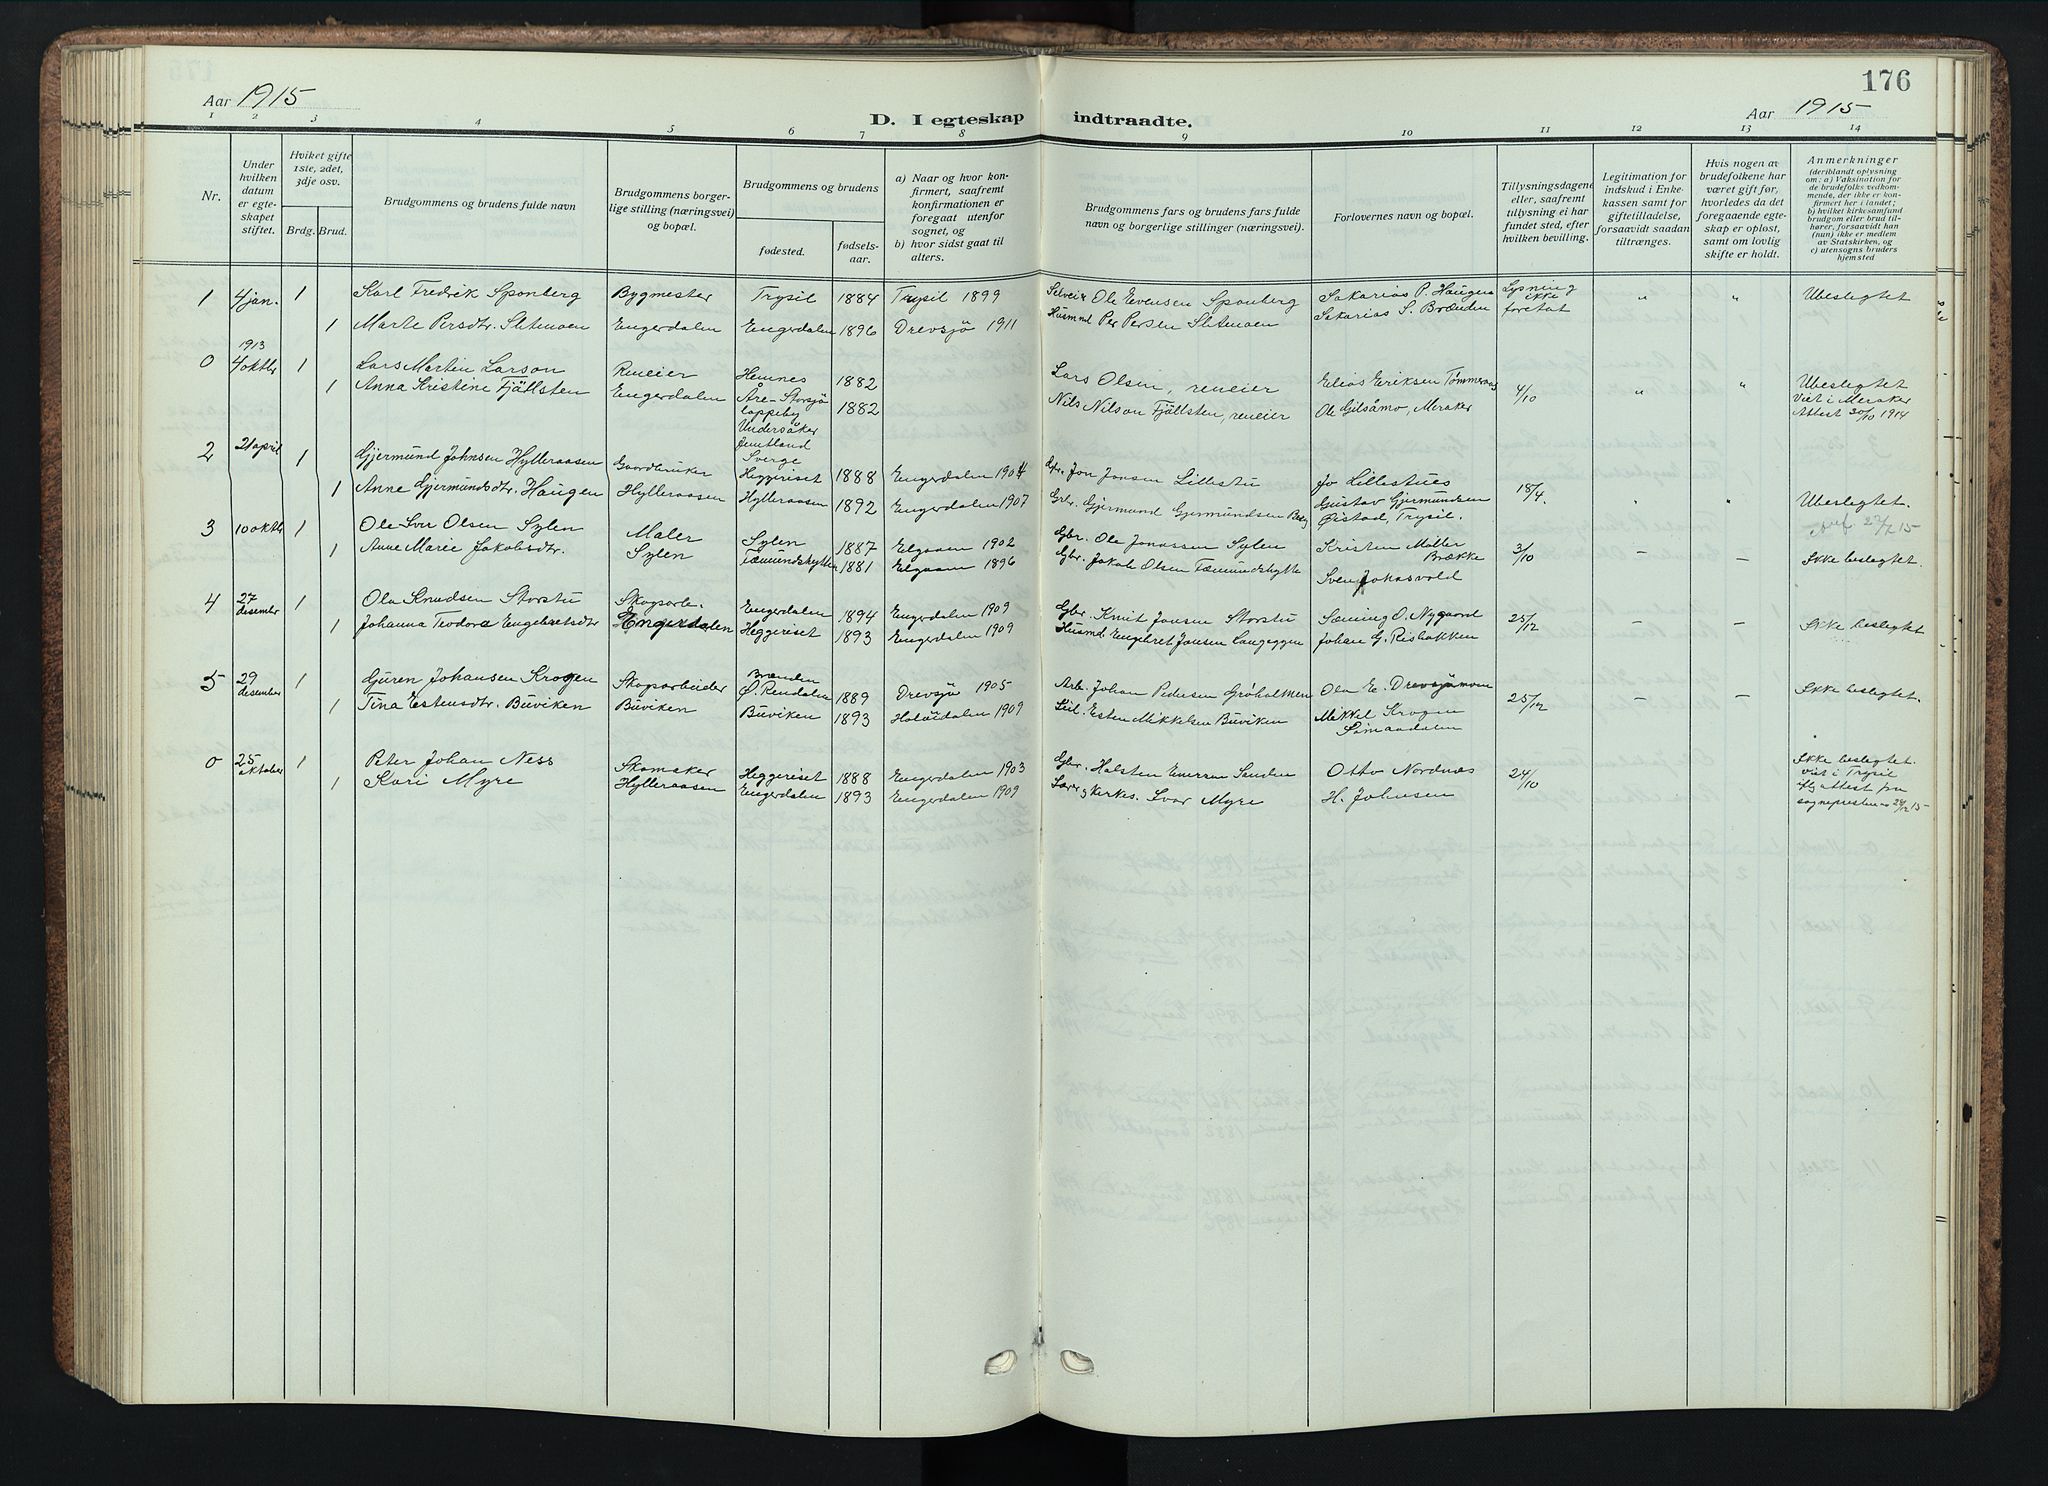 176
Aar 1915
D. I egteskap indtraadte.
Aar 1915
1 2 3 4 5 6 7 8 9 10 11 12 13 14
Nr.
Under hvilken datum er egteskapet stiftet.
Hviket gifte 1ste, 2det, 3dje osv.
Brdg. Brud.
Brudgommens og brudens fulde navn
Brudgommens borgerlige stilling (næringsvei) og bopæl.
Brudgommens og brudens
fødested.
fødselsaar.
a) Naar og hvor konfirmert, saafremt konfirmationen er foregaat utenfor sognet, og
b) hvor sidst gaat til alters.
Brudgommens fars og brudens fars fulde navn og borgerlige stillinger (næringsvei).
Forlovernes navn og bopæl.
Tillysningsdagene eller, saafremt tillysning ei har fundet sted, efter hvilken bevilling.
Legitimation for indskud i Enkekassen samt for giftetilladelse, forsaavidt saadan tiltrænges.
Hvis nogen av brudefolkene har været gift før, hvorledes da det foregaaende egteskap er opløst, samt om lovlig skifte er holdt.
Anmerkninger
(deriblandt oplysning om: a) Vaksination for de brudefolks vedkommende, der ikke er konfirmert her i landet;
b) hvilket kirkesamfund brudgom eller brud tilhører, forsaavidt han (hun) ikke er medlem av Statskirken, og
c) utensogns bruders hjemsted
1 4 jan. 1 Karl Fredrik Sponberg Bygmester Trysil 1884 Trysil 1899 Selveier Ole Evensen Sponberg Sakarias P. Haugen Lysning ikke foretat " " Ubeslegtet
1 Marte Persdtr. Slitenoen Engerdalen Engerdalen 1896 Drevsjø 1911 Husmnd Per Persen Slitenoen Sakarias S. Brænden
1913
0 4 oktbr 1 Lars Martin Larson Reneier Hemnes 1882 Lars Olsen, reneier Elias Eriksen Tømmeraas 4/10 " " Ubeslegtet
1 Anna Kristine Fjällsten Engerdalen Åre-Storsjö 1882 Nils Nilson Fjällsten, reneier Ole Gilsåmo, Meraker Viet i Meraker
lappeby Attest 30/10 1914
Undersåker
Jemtland
Sverge
2 21 april 1 Gjermund Johnsen Hylleraasen Gaardbruker Heggeriset 1888 Engerdalen 1904 Gbr. Jon Jonsen Lillestu Jo Lillestues 18/4. " " Ubeslegtet.
1 Anne Gjermundsdtr. Haugen Hylleraasen Hylleraasen 1892 Engerdalen 1907 Gbr. Gjermund Gjermundsen Gustav Gjermundsen
Øistad, Trysil.
3 10 oktbr 1 Ole Ivar Olsen Sylen Maler Sylen 1887 Elgaaen 1902 Gbr. Ole Jonassen Sylen Kristen Møller Brække 3/10 – – Ikke beslegtet.
1 Anne Marie Jakobsdtr. Sylen Fæmundshytten 1881 Elgaaen 1896 Gbr. Jakob Olsen Fæmundshytte Sven Johnsvold
4 27 desember 1 Ola Knudsen Storstu Skogsarb. Engerdalen 1894 Engerdalen 1909 Gbr. Knut Jonsen Storstu Sæming O. Nygaard 25/12 – – Ikke beslegtet
1 Johanna Teodora Engebretsdtr Engerdalen Heggeriset 1893 Engerdalen 1909 Husmd. Engebret Jonsen Langeggen Johan G. Risbakken
5 29 desember 1 Guren Johansen Krogen Skogsarbeider Brænden Ø. Rendalen 1889 Drevsjø 1905 Arb. Johan Pedersen Grøholmen Ola E. Drevsjømoen 25/12 – – Ikke beslegtet.
1 Tina Estensdtr. Buviken Buviken Buviken 1893 Holøidalen 1909 Sel. Esten Mikkelsen Buviken Mikkel Krogen
Sømaadalen
0 25 oktober 1 Peter Johan Ness Skomaker Heggeriset 1888 Engerdalen 1903 Gbr. Halsten Emersen Sanden Otto Nordnæs 24/10 Ikke beslegtet.
1 Kari Myre Hylleraasen Engerdalen 1893 Engerdalen 1909 Lærer og kirkes. Ivar Myre H. Johnsen Viet i Trysil
flg Attest fra
sognepresten 24/12 15